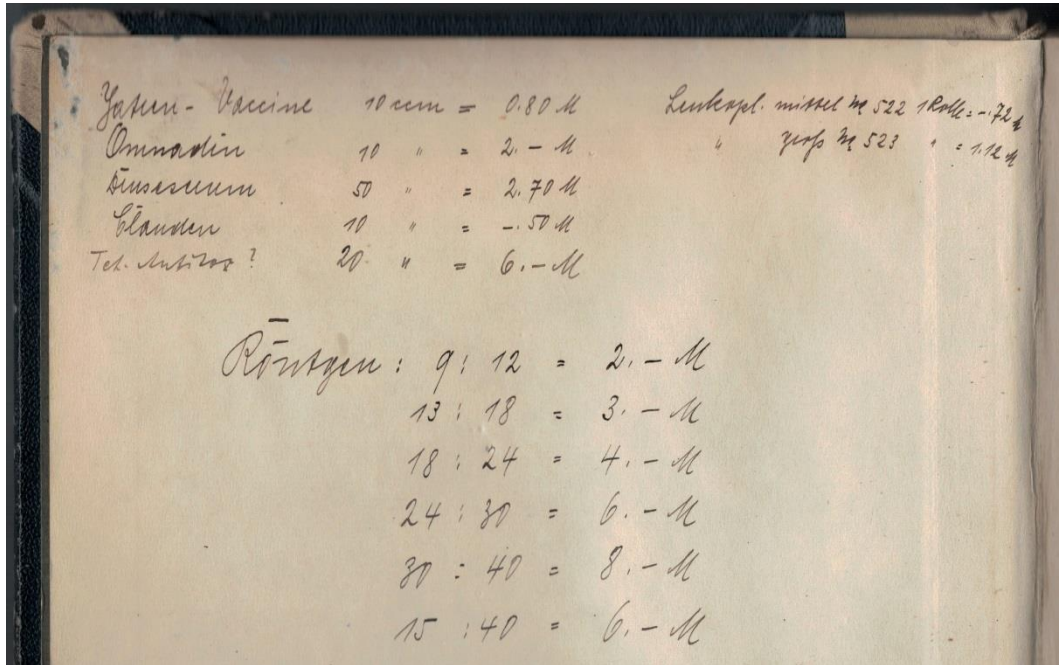 Yatren - Vaccine 10 ccm = 0.80 M
Omnadin 10 " = 2. - M
50 " = 2.70 M
Clauden 10 " = -. 50 M
Tet. Antitox ? 20 " = 6. - M
Leukopl. mittel № 522 1 Rolle = -.72 M
" groß № 523 " = 1.12 M
Röntgen : 9 : 12 = 2. - M
13 : 18 = 3. - M
18 : 24 = 4. - M
24 : 30 = 6. - M
30 : 40 = 8. - M
15 : 40 = 6. - M